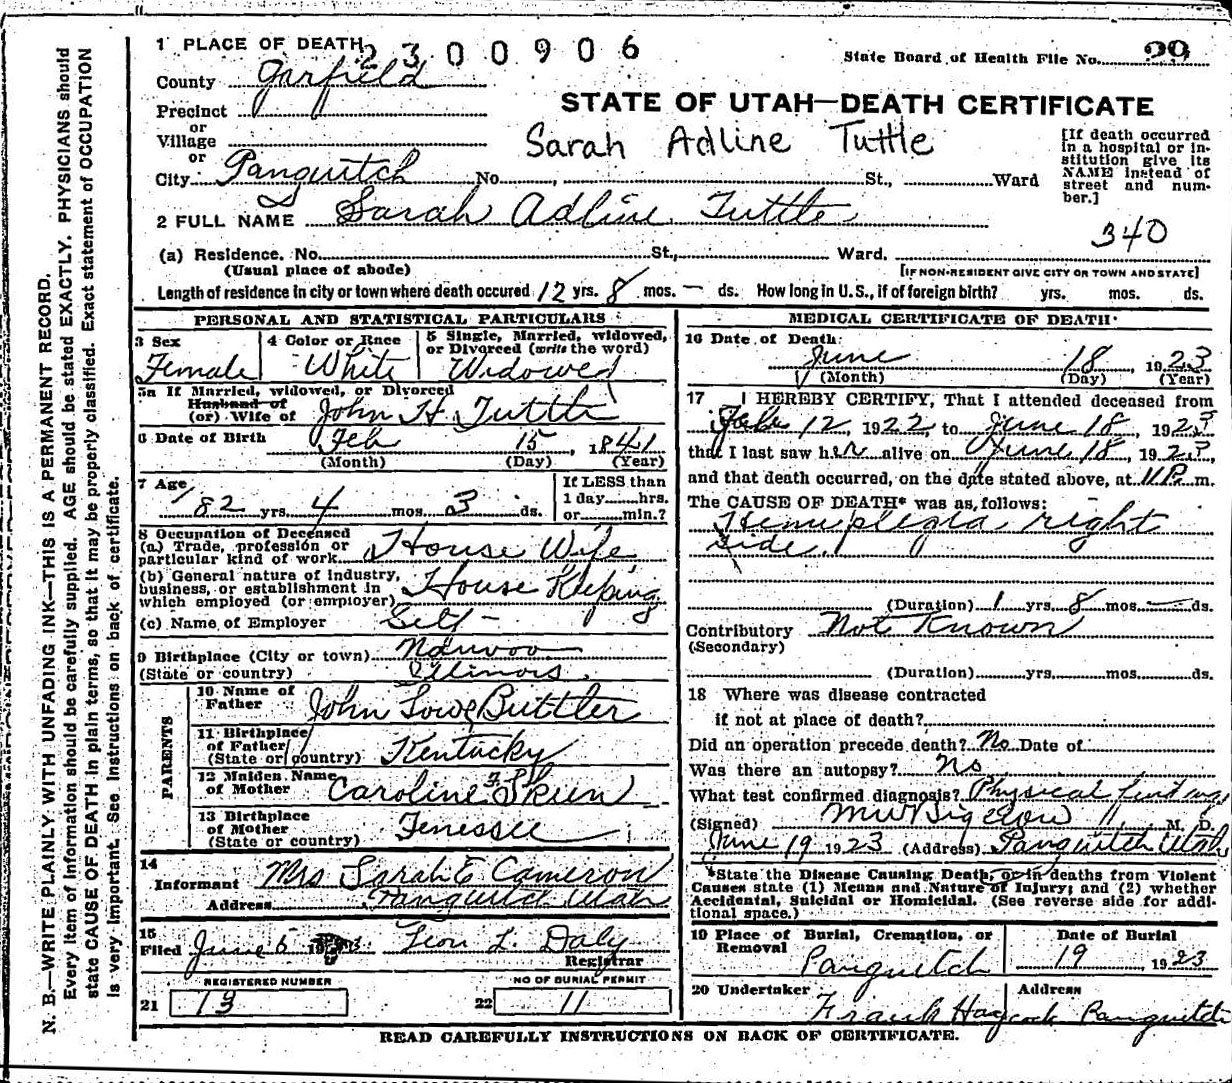 1 PLACE OF DEATH
2300906
State Board of Health File No. 29
County Garfield
Precinct
or
Village
or
City Panguitch No. , St., Ward
STATE OF UTAH—DEATH CERTIFICATE
Sarah Adline Tuttle
[If death occurred
in a hospital or in-
stitution give its
NAME instead of
street and num-
ber.]
2 FULL NAME Sarah Adline Tuttle
340
(a) Residence. No. St., Ward.
(Usual place of abode) [IF NON-RESIDENT GIVE CITY OR TOWN AND STATE]
Length of residence in city or town where death occured 12 yrs. 8 mos. — ds. How long in U.S., if of foreign birth? yrs. mos. ds.
PERSONAL AND STATISTICAL PARTICULARS
3 Sex
Female
4 Color or Race
White
5 Single, Married, widowed,
or Divorced (write the word)
Widowed
5a If Married, widowed, or Divorced
Husband of
(or) Wife of John H. Tuttle
6 Date of Birth Feb 15, 1841
(Month) (Day) (Year)
7 Age
82 yrs. 4 mos. 3 ds.
If LESS than
1 day hrs.
or min.?
8 Occupation of Deceased
(a) Trade, profession or
particular kind of work House Wife
(b) General nature of industry,
business, or establishment in
which employed (or employer) House Keeping
(c) Name of Employer Self -
9 Birthplace (City or town) Nauvoo
(State or country) Illinois.
PARENTS
10 Name of
Father John Lowe Buttler
11 Birthplace
of Father
(State or country) Kentucky
12 Maiden Name
of Mother Caroline Skeen
13 Birthplace
of Mother
(State or country) Tenessee
14
Informant Mrs Sarah E Cameron
Address Panguitch Utah
15
Filed June 5 Leon L. Daly
Registrar
REGISTERED NUMBER
21 13
NO OF BURIAL PERMIT
22 11
MEDICAL CERTIFICATE OF DEATH
16 Date of Death:
June 18, 1923
(Month) (Day) (Year)
17 I HEREBY CERTIFY, That I attended deceased from
Feb 12 1922, to June 18, 1923
that I last saw her alive on June 18, 1923,
and that death occurred, on the date stated above, at 11 P. m.
The CAUSE OF DEATH* was as follows:
Hemiplegia right
side.
(Duration) 1 yrs. 8 mos. — ds.
Contributory Not Known
(Secondary)
(Duration) yrs. mos. ds.
18 Where was disease contracted
if not at place of death?
Did an operation precede death? No Date of
Was there an autopsy? No
What test confirmed diagnosis? Physical findings
(Signed) M W Bigelow, M. D.
June 19 1923 (Address) Panguitch Utah
*State the Disease Causing Death, or in deaths from Violent
Causes state (1) Means and Nature of Injury; and (2) whether
Accidental, Suicidal or Homicidal. (See reverse side for addi-
tional space.)
19 Place of Burial, Cremation, or
Removal
Panguitch
Date of Burial
19, 1923
20 Undertaker
Frank Haycock
Address
Panguitch
READ CAREFULLY INSTRUCTIONS ON BACK OF CERTIFICATE.
N. B.—WRITE PLAINLY WITH UNFADING INK—THIS IS A PERMANENT RECORD.
Every item of information should be carefully supplied. AGE should be stated EXACTLY. PHYSICIANS should
state CAUSE OF DEATH in plain terms, so that it may be properly classified. Exact statement of OCCUPATION
is very important. See instructions on back of certificate.